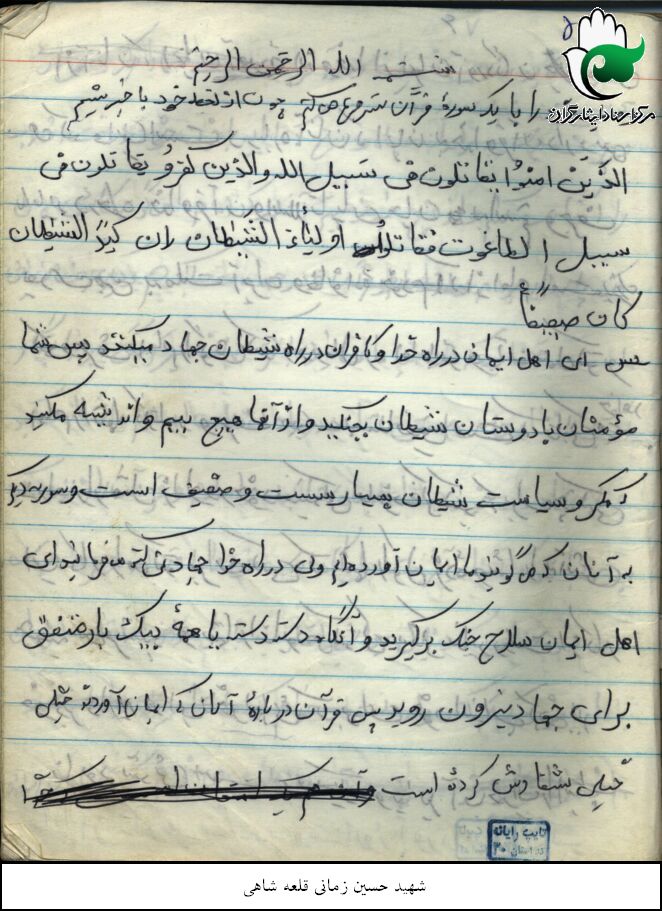 مرکز اسناد ایثارگران
بسم الله الرحمن الرحیم
را با یک سورهٔ قرآن شروع می‌کنم چون از لفظ خود با خبر نیستم
الذین امنوا یقاتلون فی سبیل الله والذین کفرو یقاتلون فی
سبیل الطاغوت فقاتلو اولیاء الشیطان ان کیدا لشیطان
کان ضعیفاً
پس ای اهل ایمان در راه خدا و کافران در راه شیطان جهاد میکنند پس شما
مؤمنان با دوستان شیطان بجنگید و از آنها هیچ بیم و اندیشه مکنید
که مکر و سیاست شیطان بسیار سست و ضعیف است و سوره دیگر
به آنان که می گویند ما ایمان آورده‌ایم ولی در راه خدا جهاد می‌فرماید ای
اهل ایمان سلاح جنگ برگیرید و آنگاه دسته دسته یا همهٔ بیک بار متفق
برای جهاد بیرون روید پس قرآن دربارهٔ آنان که ایمان آوردند خیلی
خیلی سفارش کردهٔ است
تایپ رایانه
۳۰
شهید حسین زمانی قلعه شاهی